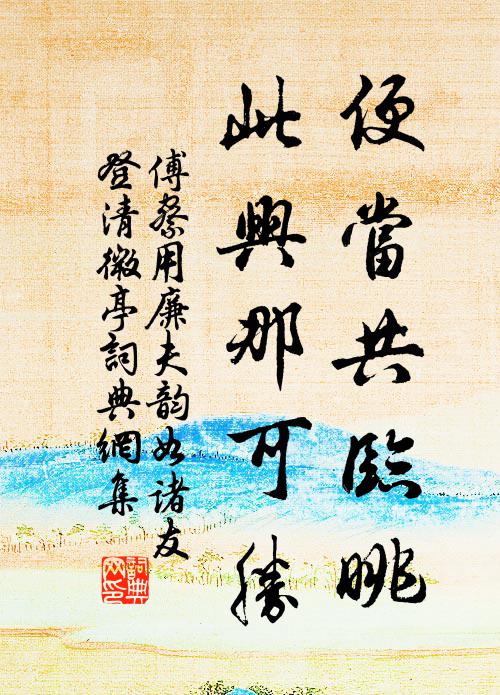 便當共臨眺
此興那可勝
傅察用廉夫韵如諸友
登清微亭詞典網集
詞典网印